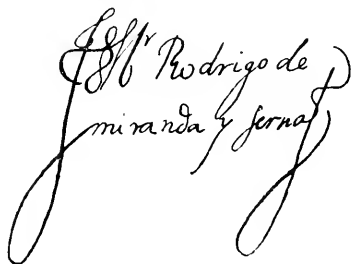 Mr Rodrigo de
miranda y serna